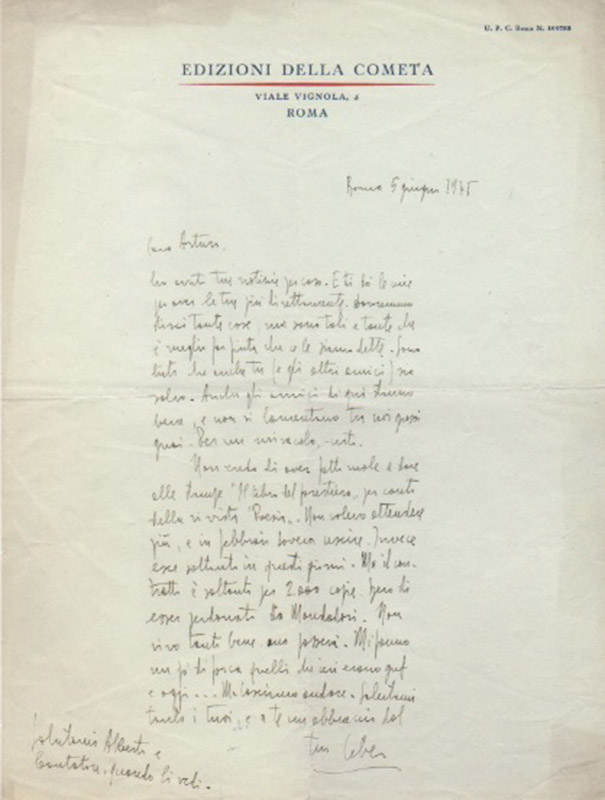 U. P. C. Roma N.
EDIZIONI DELLA COMETA
VIALE VIGNOLA,
ROMA
Roma 5 giugno 1945
Caro Arturo,
ho avuto tue notizie per caso. E ti dò le mie
per aver le tue più direttamente. Dovremmo
dirci tante cose, ma sono tali e tante che
è meglio far finta che ce le siamo dette. Sono
lieto che anche tu (e gli altri amici) sia
salvo. Anche gli amici di qui stanno
bene, e non si lamentano tra noi grossi
guai. Per un miracolo, certo.
Non credo di aver fatto male a dare
alle stampe "Il libro del forestiero" per conto
della rivista "Poesia". Non volevo attendere
più, e in febbraio doveva uscire. Invece
esce soltanto in questi giorni. Ma il con-
tratto è soltanto per 2.000 copie. Spero di
esser perdonato da Mondadori. Non
vivo tanto bene, ma passerà. Mi fanno
un pò di quelli che ieri erano guf
e oggi... Ma lasciamo andare. Salutami
tanto i tuoi, e a te un abbraccio dal
tuo Libero
Salutami Alberto e
Cantatore, quando li vedi.